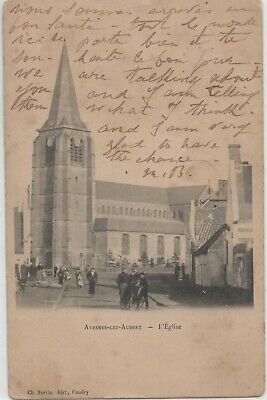 nous sommes arrivés en
bon santé. Tout le monde
ici se porte bien et te
souhaite le bon jour
We are talking about
you and I am telling
them what I think
and I am very
glad to have
the chance
M.B.
AVESNES-LEZ-AUBERT — L'Église
Édit., Caudry